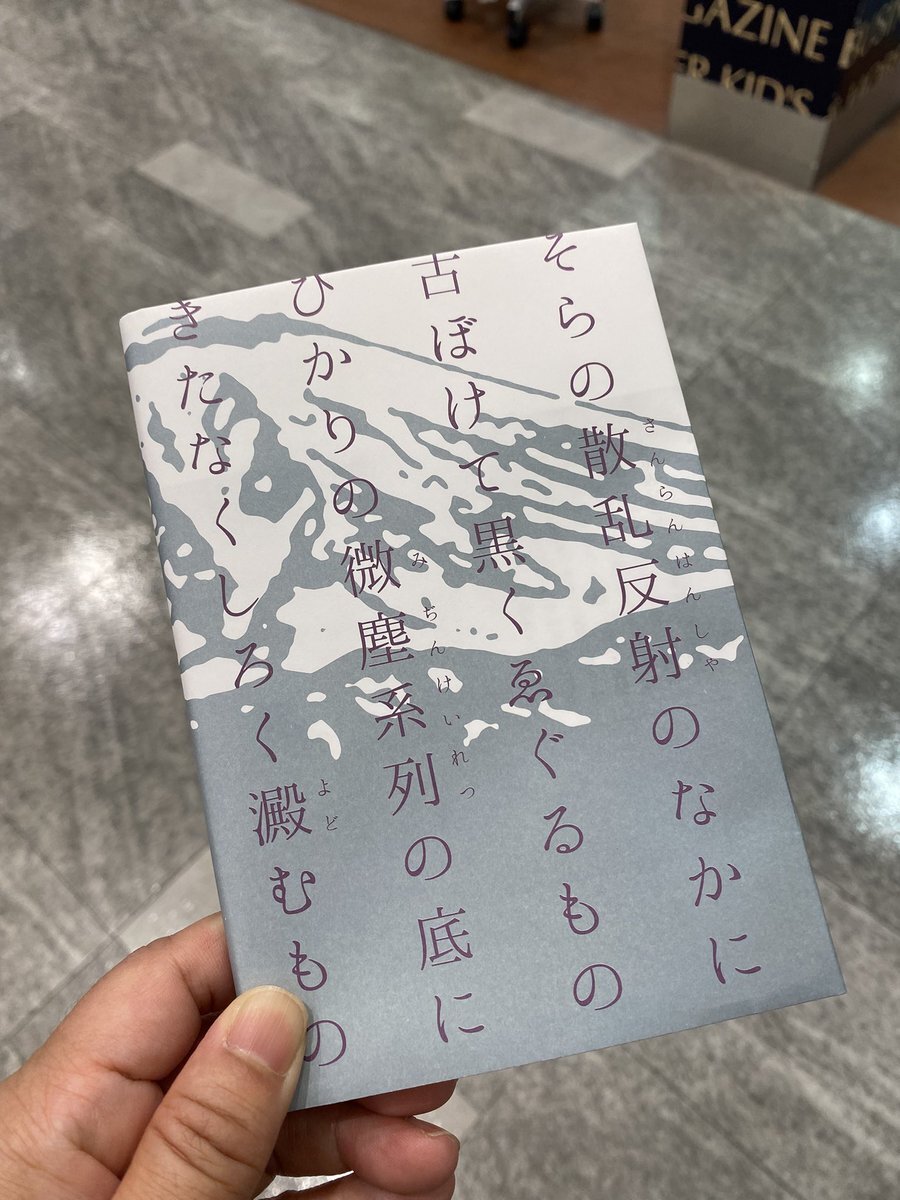 そらの散乱反射のなかに
さんらんはんしや
古ぼけて黒くゑぐるもの
ひかりの微塵系列の底に
みぢんけいれつ
きたなくしろく澱むもの
よど
GAZINE
ER KID'S